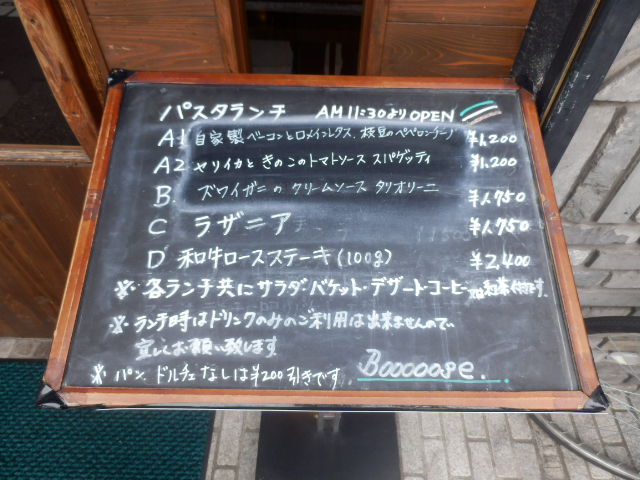 パスタランチ AM 11:30より OPEN
A1 自家製ベーコンとロメインレタス、枝豆のペペロンチーノ ¥1,200
A2 ヤリイカときのこのトマトソース スパゲッティ ¥1,200
B. ズワイガニのクリームソース タリオリーニ ¥1,750
C ラザニア ¥1,750
D 和牛ロースステーキ(100g) ¥2,400
※各ランチ共にサラダ・バケット・デザート・コーヒー or 紅茶付です。
※ランチ時はドリンクのみのご利用は出来ませんので
宜しくお願い致します
※パン、ドルチェなしは¥200引きです。 Booooose.